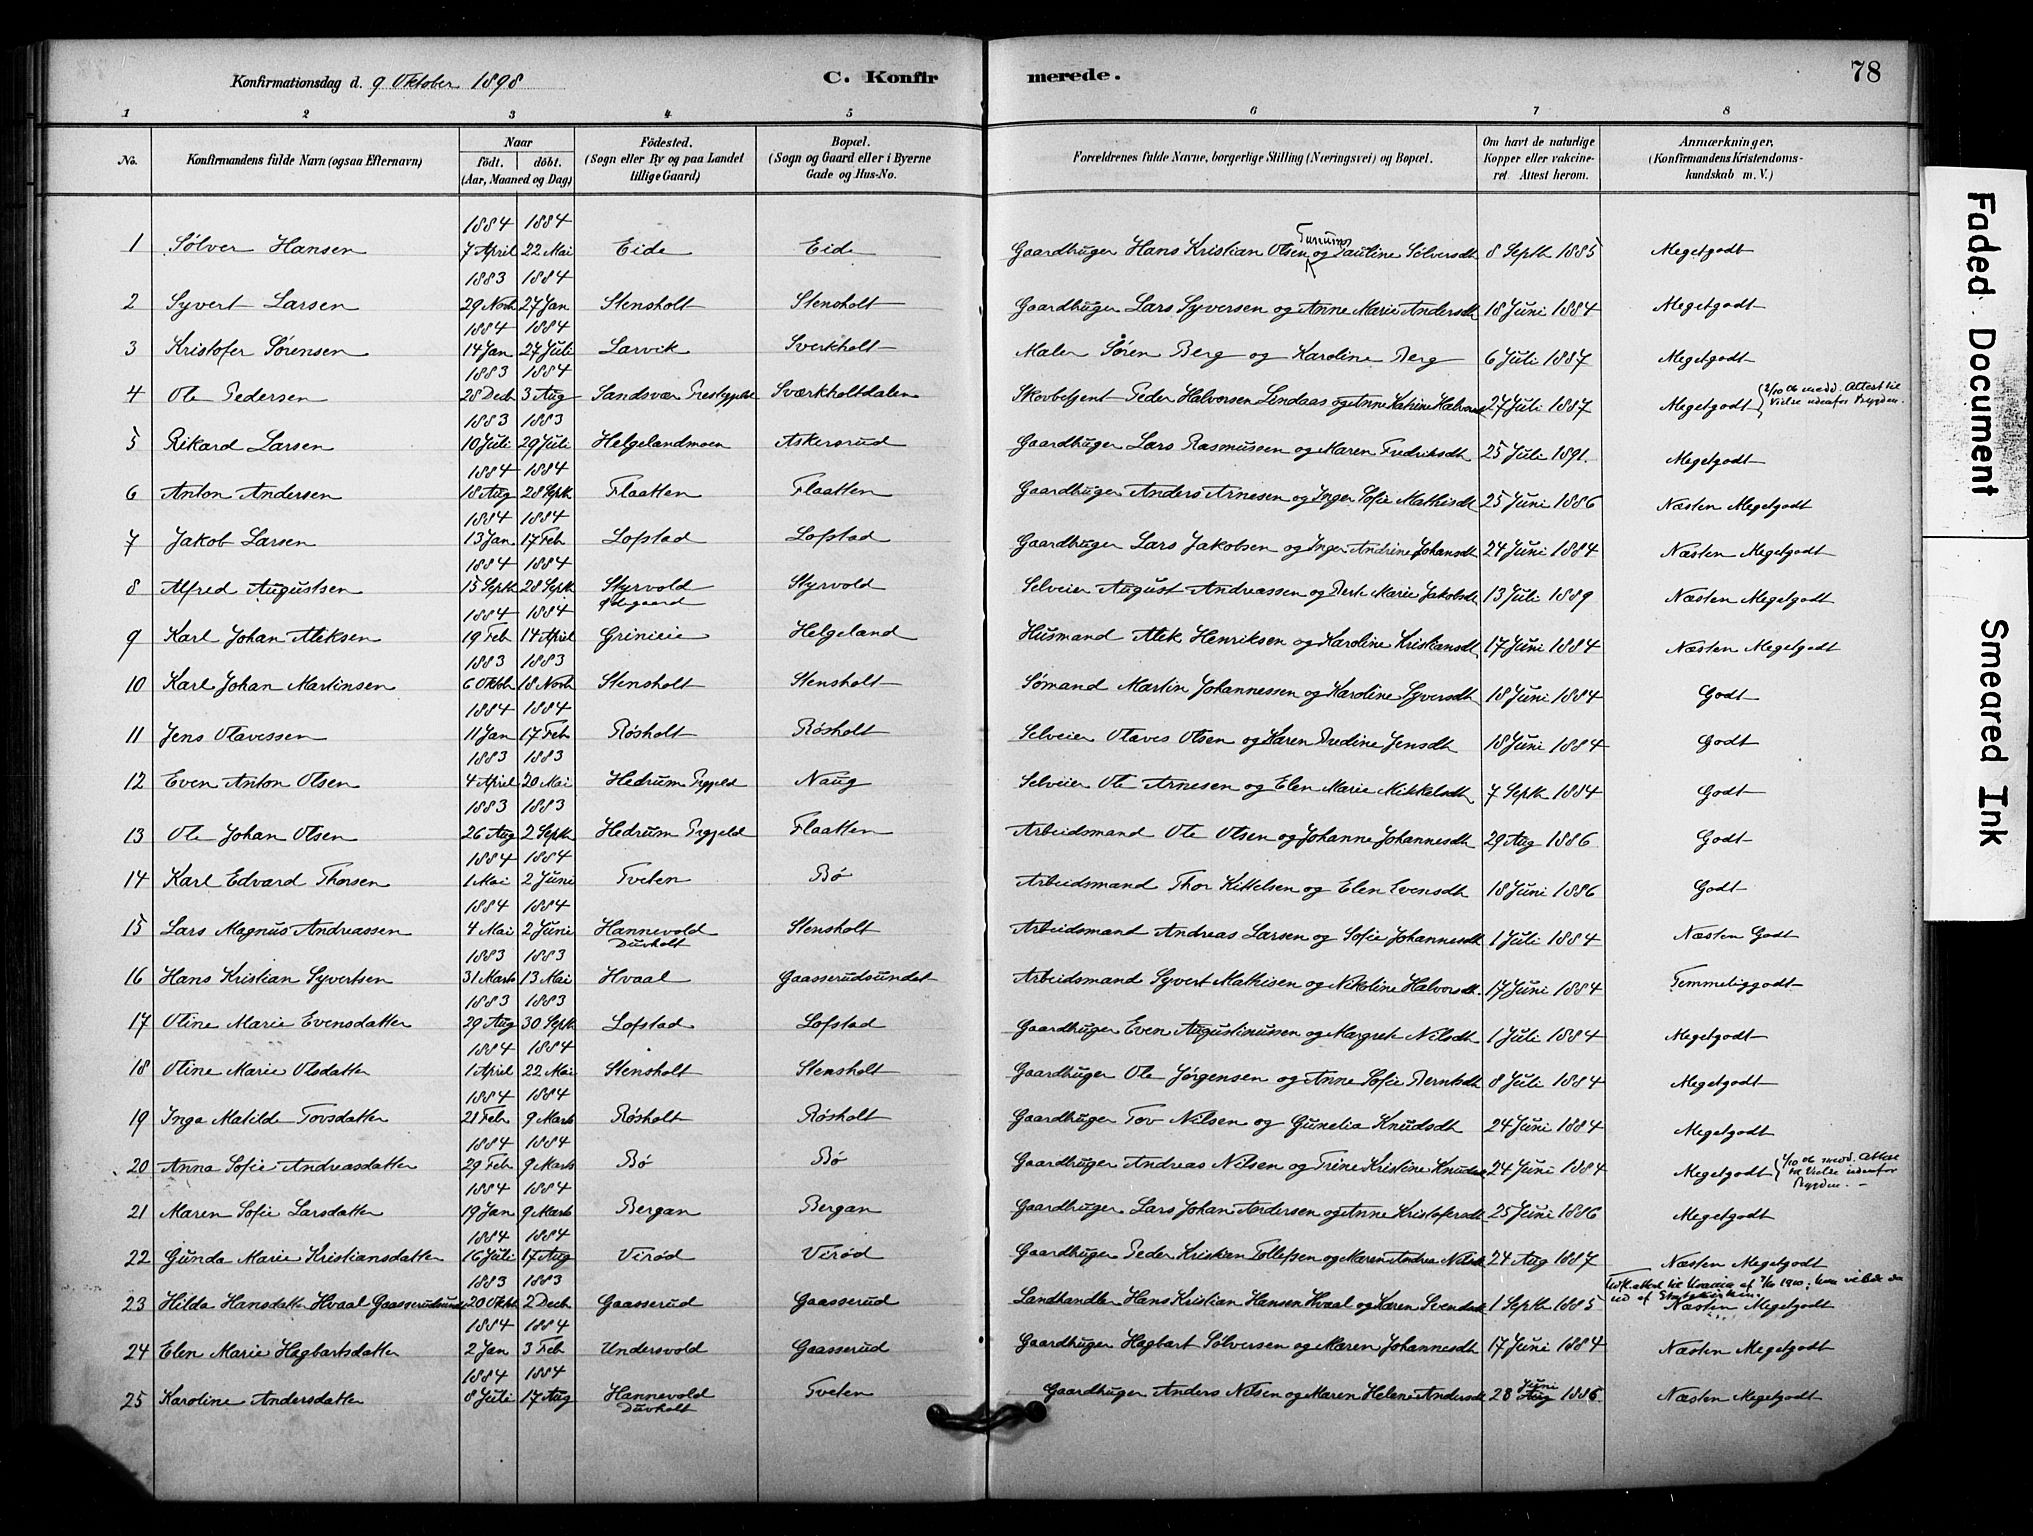 Konfirmationsdag d. 9 Oktober 1898 C. Konfir merede. 78
1 2 3 4 5 6 7 8
No. Konfirmandens fulde Navn (ogsaa Efternavn) Naar födt. döbt. (Aar, Maaned og Dag) Födested. (Sogn eller By og paa Landet tillige Gaard) Bopæl. (Sogn og Gaard eller i Byerne Gade og Hus-No. Forældrenes fulde Navne, borgerlige Stilling (Næringsvei) og Bopæl. Om havt de naturlige Kopper eller vakcineret. Attest herom. Anmærkninger, (Konfirmandens Kristendomskundskab m. V.)
1884 1884
1 Sølver Hansen 7 April 22 Mai Eide Eide Gaardbruger Hans Kristian Olsen og Pauline Sølversdt 8 Septb 1885 Megetgodt
1883 1884
2 Syvert Larsen 29 Novb 27 Jan Stensholt Stensholt Gaardbruger Lars Syversen og Anne Marie Andersdt 18 Juni 1884 Megetgodt
1884 1884
3 Kristofer Sørensen 14 Jan 27 Juli Larvik Sverkholt Maler Sören Berg og Karoline Berg 6 Juli 1887 Megetgodt
1883 1884
4 Ole Pedersen 28 Decb 3 Aug Sandsvær Prestegjeld Sværkholtdalen Skovbetjent Peder Halvorsen Lindaas og Anne Katrine Halvorsdt 27 Juli 1887 Megetgodt
medd. Attest til
Vielse udenfor Bygden.
1883 1883
5 Rikard Larsen 10 Juli 29 Juli Helgelandmoen Askersrud Gaardbruger Lars Rasmussen og Maren Fredriksdt 25 Juli 1891. Megetgodt
1884 1884
6 Anton Andersen 18 Aug 28 Septb Flaatten Flaatten Gaardbruger Anders Arnesen og Inger Sofie Mathisdt 25 Juni 1886 Næsten Megetgodt
1884 1884
7 Jakob Larsen 13 Jan 17 Feb Lofstad Lofstad Gaardbruger Lars Jakobsen og Inger Andrine Johansdt 24 Juni 1884 Næsten Megetgodt
1884 1884
8 Alfred Augustsen 15 Septb 28 Septb Styrvold Ødegaard Styrvold Selveier August Andreassen og Berte Marie Jakobsdt 13 Juli 1889 Næsten Megetgodt
1884 1884
9 Karl Johan Aleksen 19 Feb 14 April Grinieie Helgeland Husmand Alek Henriksen og Karoline Kristiansdt 17 Juni 1884 Næsten Megetgodt
1883 1883
10 Karl Johan Martinsen 6 Oktb 18 Novb Stensholt Stensholt Sømand Martin Johannessen og Karoline Syversdt 18 Juni 1884 Godt
1884 1884
11 Jens Olavessen 11 Jan 17 Feb Røsholt Røsholt Selveier Olaves Olsen og Karen Bredine Jensdt 18 Juni 1884 Godt
1883 1883
12 Even Anton Olsen 4 April 20 Mai Hedrum Prgjeld Naug Selveier Ole Arnesen og Elen Marie Mikkelsdt 7 Septb 1884 Godt
1883 1883
13 Ole Johan Olsen 26 Aug 2 Septb Hedrum Prgjeld Flaatten Arbeidsmand Ole Olsen og Johanne Johannesdt 29 Aug 1886 Godt
1884 1884
14 Karl Edvard Thorsen 1 Mai 2 Juni Tveten Bø Arbeidsmand Thor Kittelsen og Elen Evensdt 18 Juni 1886 Godt
1884 1884
15 Lars Magnus Andreassen 4 Mai 2 Juni Hannevold Duvholt Stensholt Arbeidsmand Andreas Larsen og Sofie Johannesdt 1 Juli 1884 Næsten Godt
1883 1883
16 Hans Kristian Syvertsen 31 Marts 13 Mai Hvaal Gaasserudsundet Arbeidsmand Syvert Mathisen og Nikoline Halvorsdt. 17 Juni 1884 Temmeliggodt
1883 1883
17 Oline Marie Evensdatter 29 Aug 30 Septb Lofstad Lofstad Gaardbruger Even Augustinussen og Margrete Nilsdt 1 Juli 1884 Megetgodt
1884 1884
18 Oline Marie Olsdatter 1 April 22 Mai Stensholt Stensholt Gaardbruger Ole Jørgensen og Anne Sofie Berntsdt 8 Juli 1884 Megetgodt
1884 1884
19 Inga Matilde Tovsdatter 21 Feb 9 Marts Røsholt Røsholt Gaardbruger Tov Nilsen og Gunelia Knudsdt 24 Juni 1884 Megetgodt
1884 1884
20 Anna Sofie Andreasdatter 29 Feb 9 Marts Bø Bø Gaardbruger Andreas Nilsen og Trine Kristine Knudsdt 24 Juni 1884 Megetgodt
medd. Attest
til Vielse udenfor
Bygden.
1884 1884
21 Maren Sofie Larsdatter 19 Jan 9 Marts Bergan Bergan Gaardbruger Lars Johan Andersen og Anne Kristofersdt 25 Juni 1886 Megetgodt
1884 1884
22 Gunda Marie Kristiansdatter 16 Juli 17 Aug Virød Virød Gaardbruger Peder Kristian Tollefsen og Maren Andrea Nilsdt 24 Aug 1887 Næsten Megetgodt
1883 1883
23 Hilda Hansdatter Hvaal Gaasserudsund 20 Oktb 2 Decb Gaasserud Gaasserud Landhandler Hans Kristian Hansen Hvaal og Karen Svendsdt 1 Septb 1885 Næsten Megetgodt
ud af Statskirken.
1884 1884
24 Elen Marie Hagbartsdatter 2 Jan 3 Feb Undersvold Gaasserud Gaardbruger Hagbart Sølversen og Maren Johannesdt 17 Juni 1884 Næsten Megetgodt
1884 1884
25 Karoline Andersdatter 8 Juli 17 Aug Hannevold Duvholt Tveten Gaardbruger Anders Nilsen og Maren Helene Andersdt 28 Juni Aug 1886. Næsten Megetgodt
Faded Document
Smeared Ink